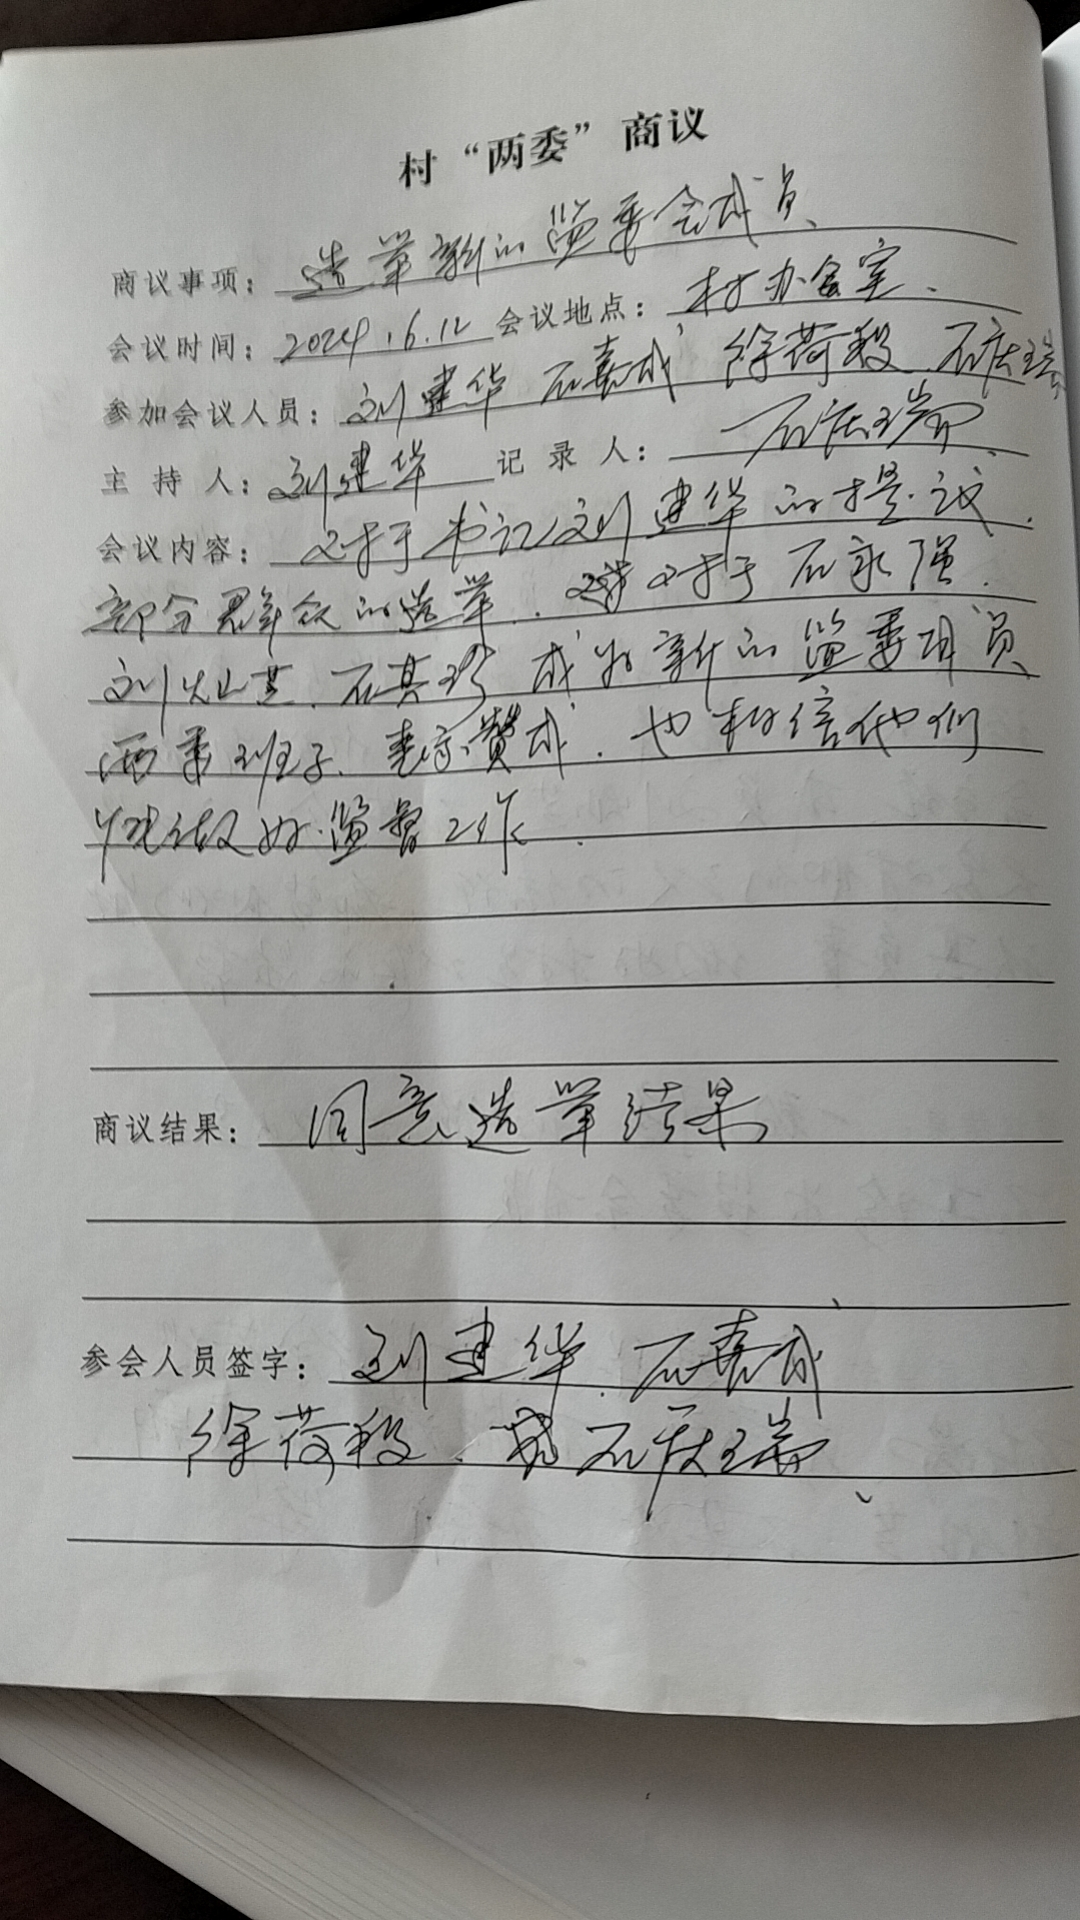 村“两委”商议
商议事项：选举新的监委会成员
会议时间：2024.6.12 会议地点：村办会室.
参加会议人员：刘建华 石嘉成 徐荷段 石庆瑞
主持人：刘建华 记录人：石庆瑞
会议内容：对于书记刘建华的提议.
部分群众的选举. 对于石永强.
刘灿芝. 石其珍 成为新的监委成员
两委班子. 表示赞成. 也相信他们
能做好监督工作.
商议结果：同意选举结果
参会人员签字：刘建华. 石嘉成
徐荷段. 石庆瑞